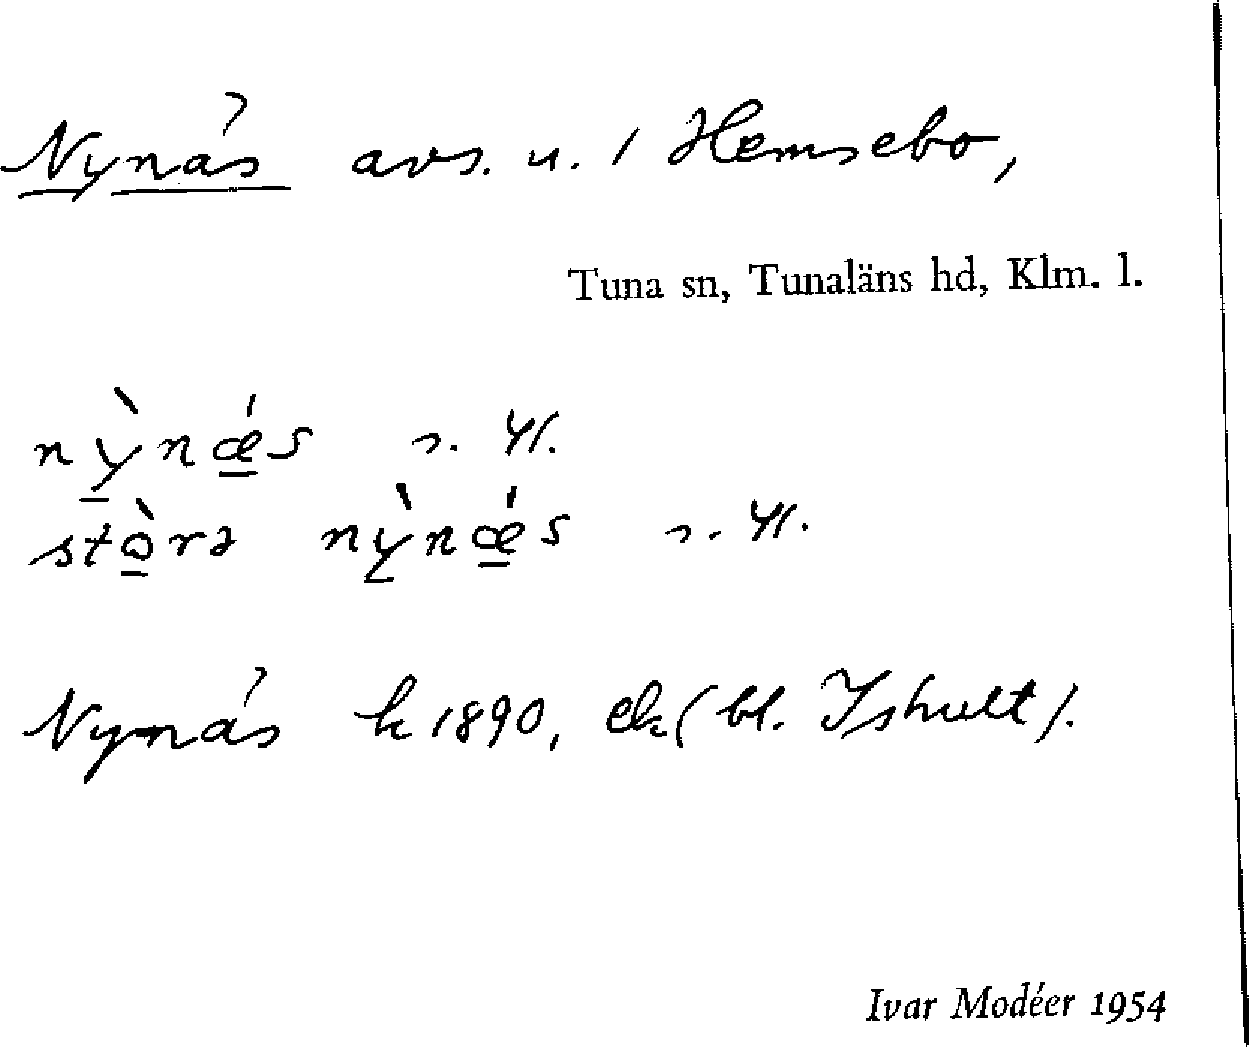 Nynäs avs. u. 1 Hemsebo,
Tuna sn, Tunaläns hd, Klm. l.
nỳnǽs
stòrə nỳnǽs
Nynäs k 1890, ek (bl. Ishult).
Ivar Modéer 1954